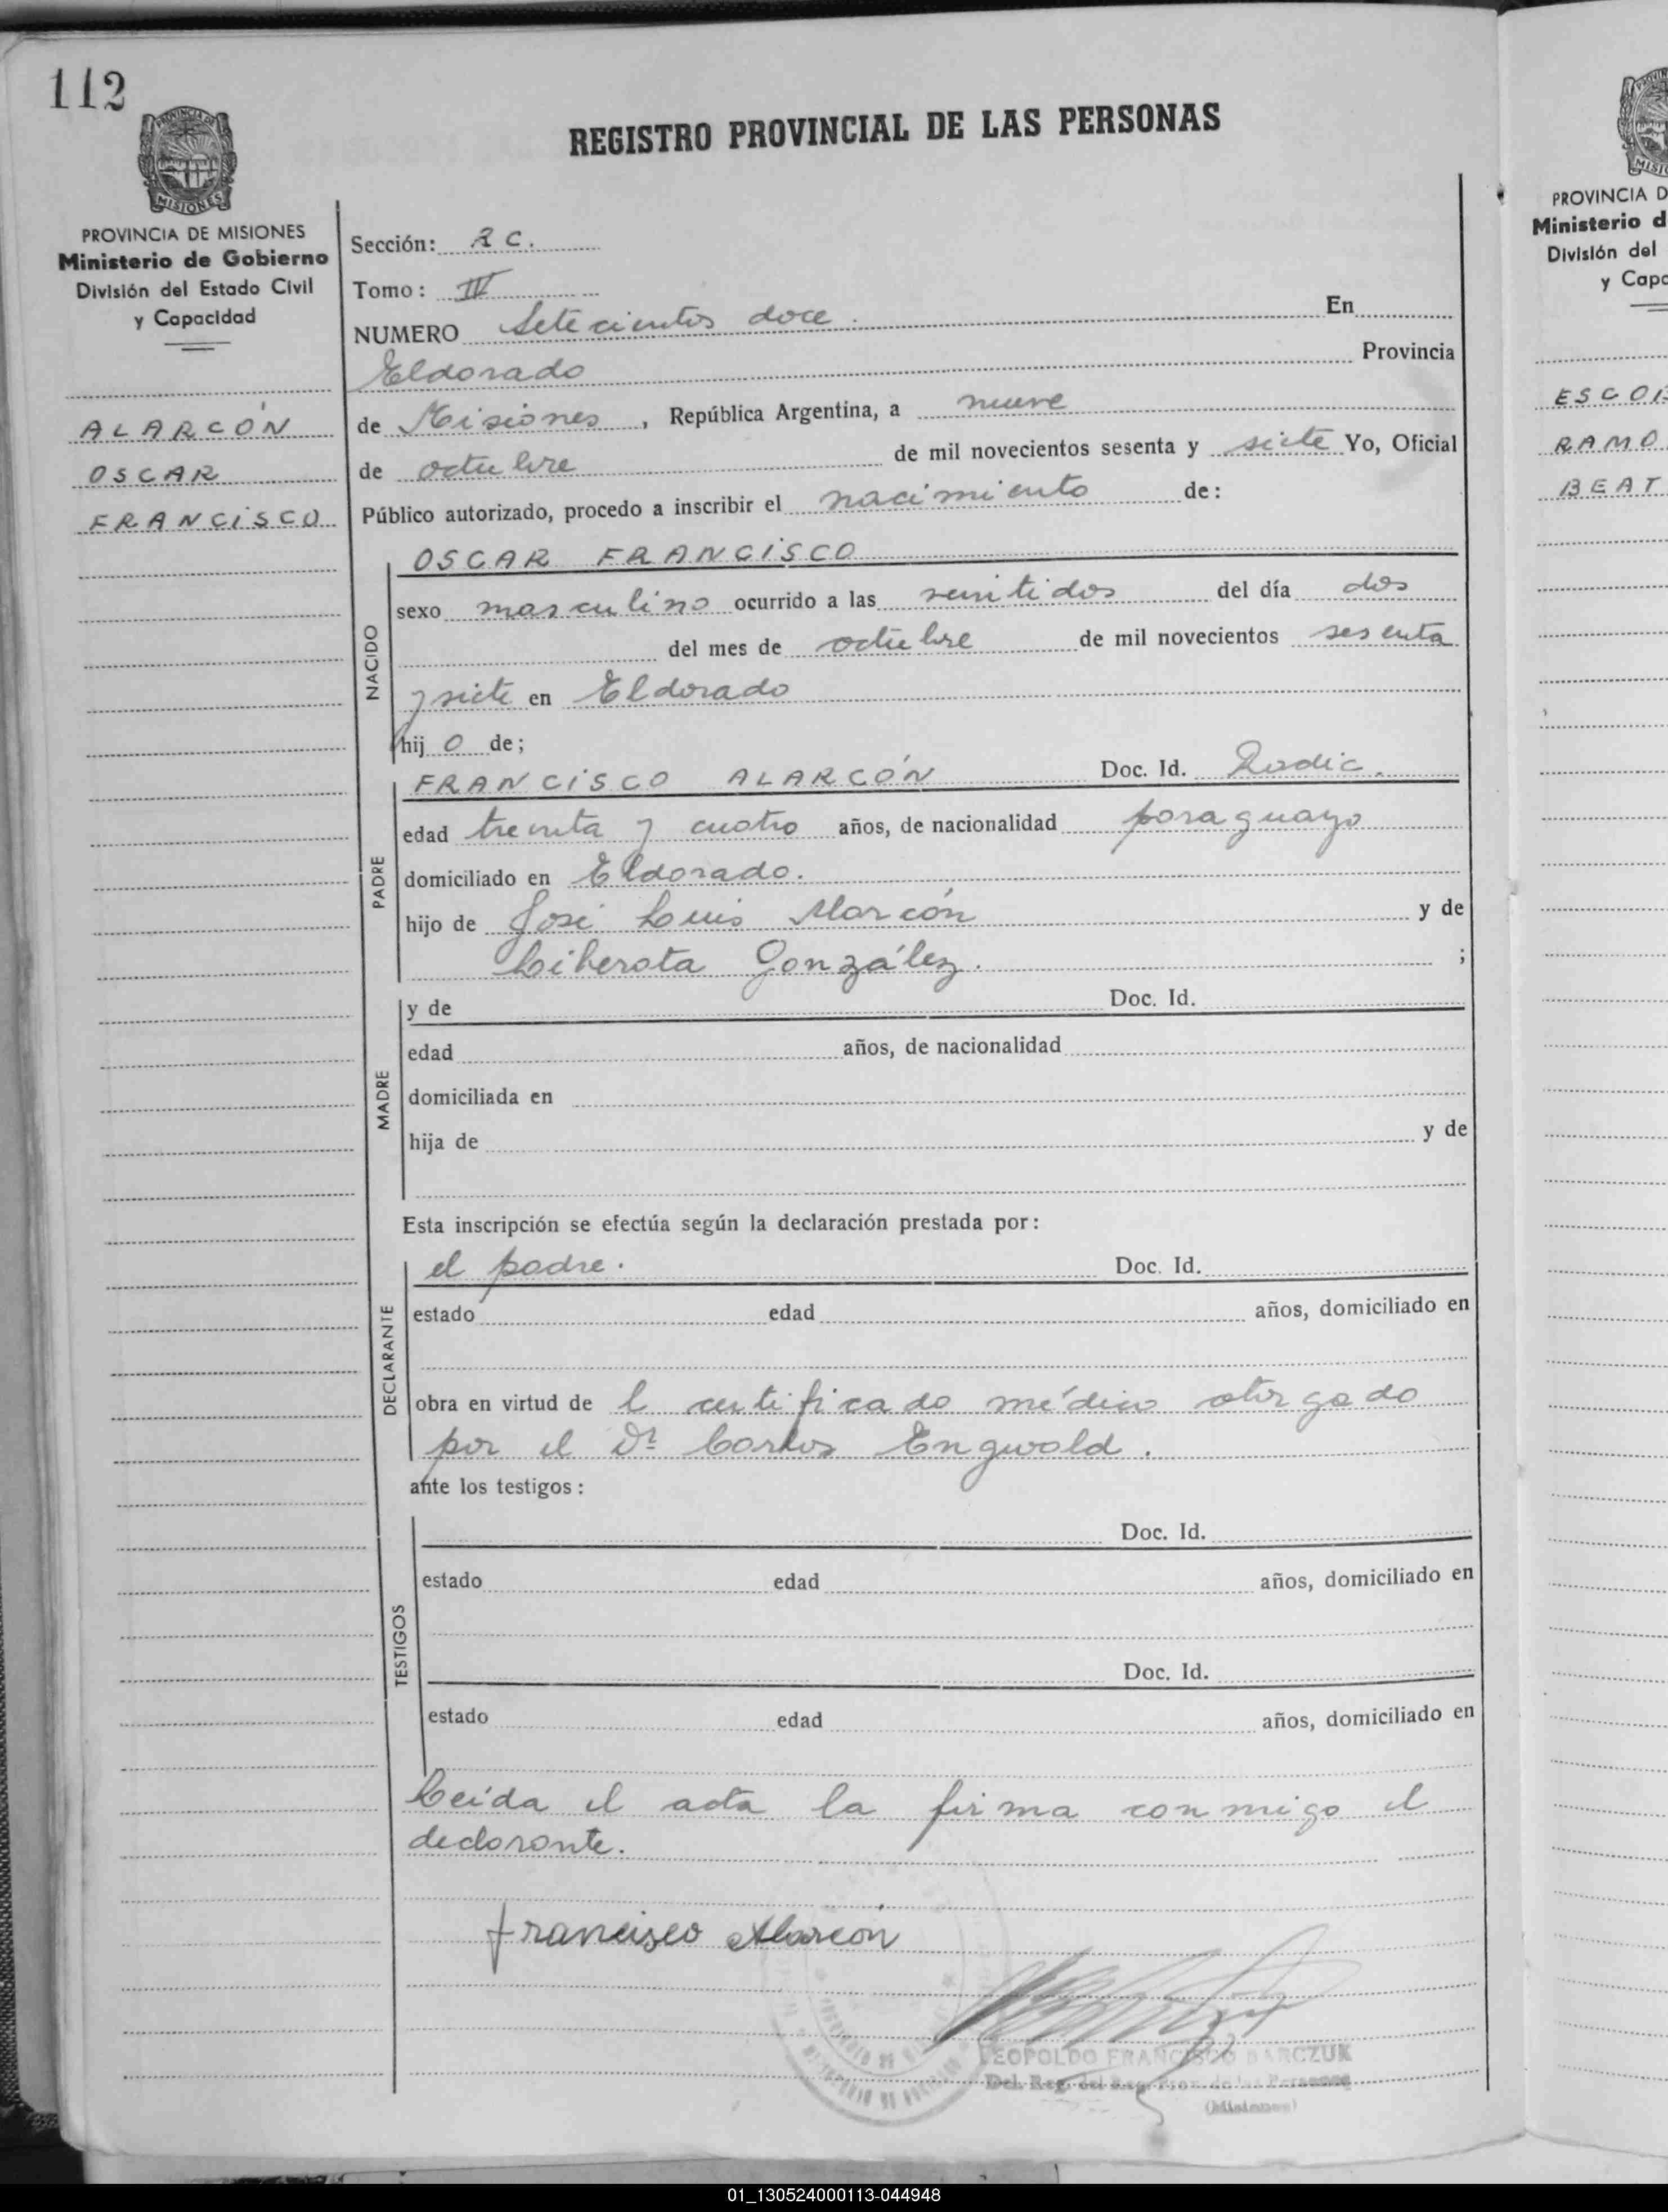 112
REGISTRO PROVINCIAL DE LAS PERSONAS
PROVINCIA DE MISIONES
Ministerio de Gobierno
División del Estado Civil
y Capacidad
ALARCÓN
OSCAR
FRANCISCO
Sección: R C.
Tomo: IV
NUMERO Setecientos doce. En
Eldorado Provincia
de Misiones, República Argentina, a nueve
de octubre de mil novecientos sesenta y siete Yo, Oficial
Público autorizado, procedo a inscribir el nacimiento de:
NACIDO
OSCAR FRANCISCO
sexo masculino ocurrido a las veintidos del día dos
del mes de octubre de mil novecientos sesenta
y siete en Eldorado
hijo de;
PADRE
FRANCISCO ALARCÓN Doc. Id. Radic.
edad treinta y cuatro años, de nacionalidad paraguayo
domiciliado en Eldorado.
hijo de José Luis Alarcón y de
Liberata González. ;
MADRE
y de Doc. Id.
edad años, de nacionalidad
domiciliada en
hija de y de
Esta inscripción se efectúa según la declaración prestada por:
DECLARANTE
el padre. Doc. Id.
estado edad años, domiciliado en
obra en virtud de l certificado médico otorgado
por el Dr Carlos Engwald.
ante los testigos:
TESTIGOS
Doc. Id.
estado edad años, domiciliado en
Doc. Id.
estado edad años, domiciliado en
Leída el acta la firma conmigo el
declarante.
Francisco Alarcón
LEOPOLDO FRANCISCO BARCZUK
Del. Reg. del Reg. Prov. de las Personas
(Misiones)
PROVINCIA D
Ministerio d
División del
y Capa
ESCOB
RAMO
BEAT
01_130524000113-044948